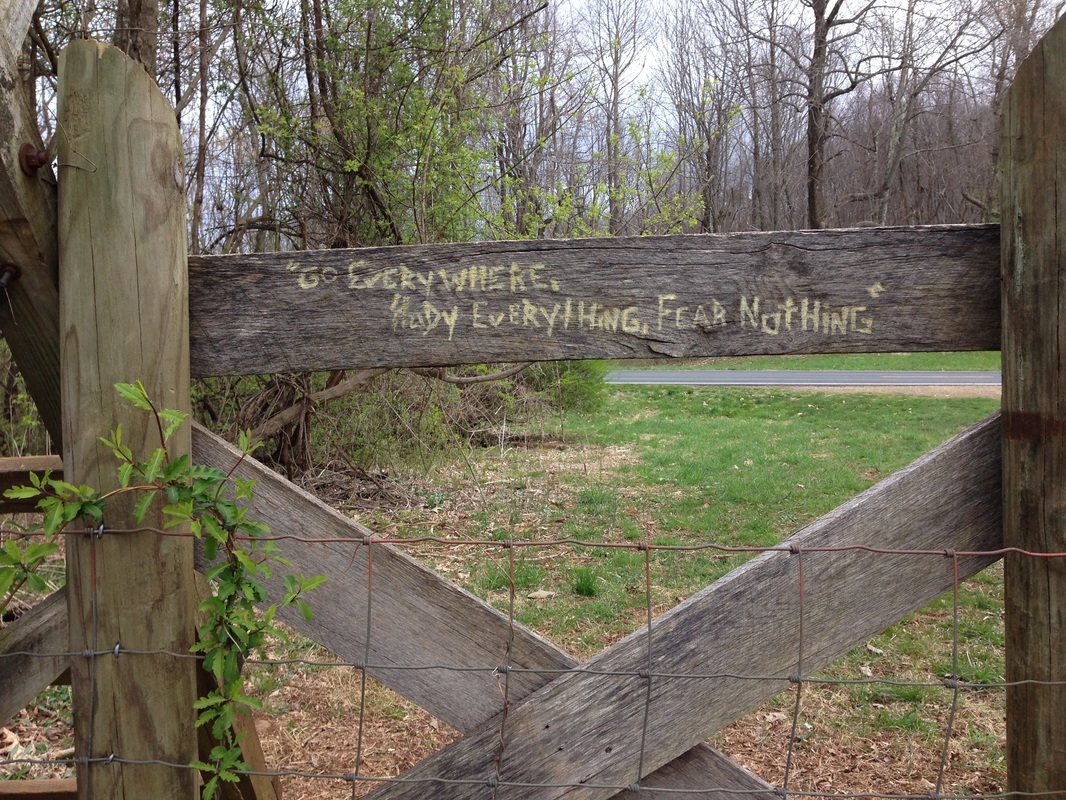 "GO EVERYWHERE,
StuDy EVERYtHING, FEAR NotHING"